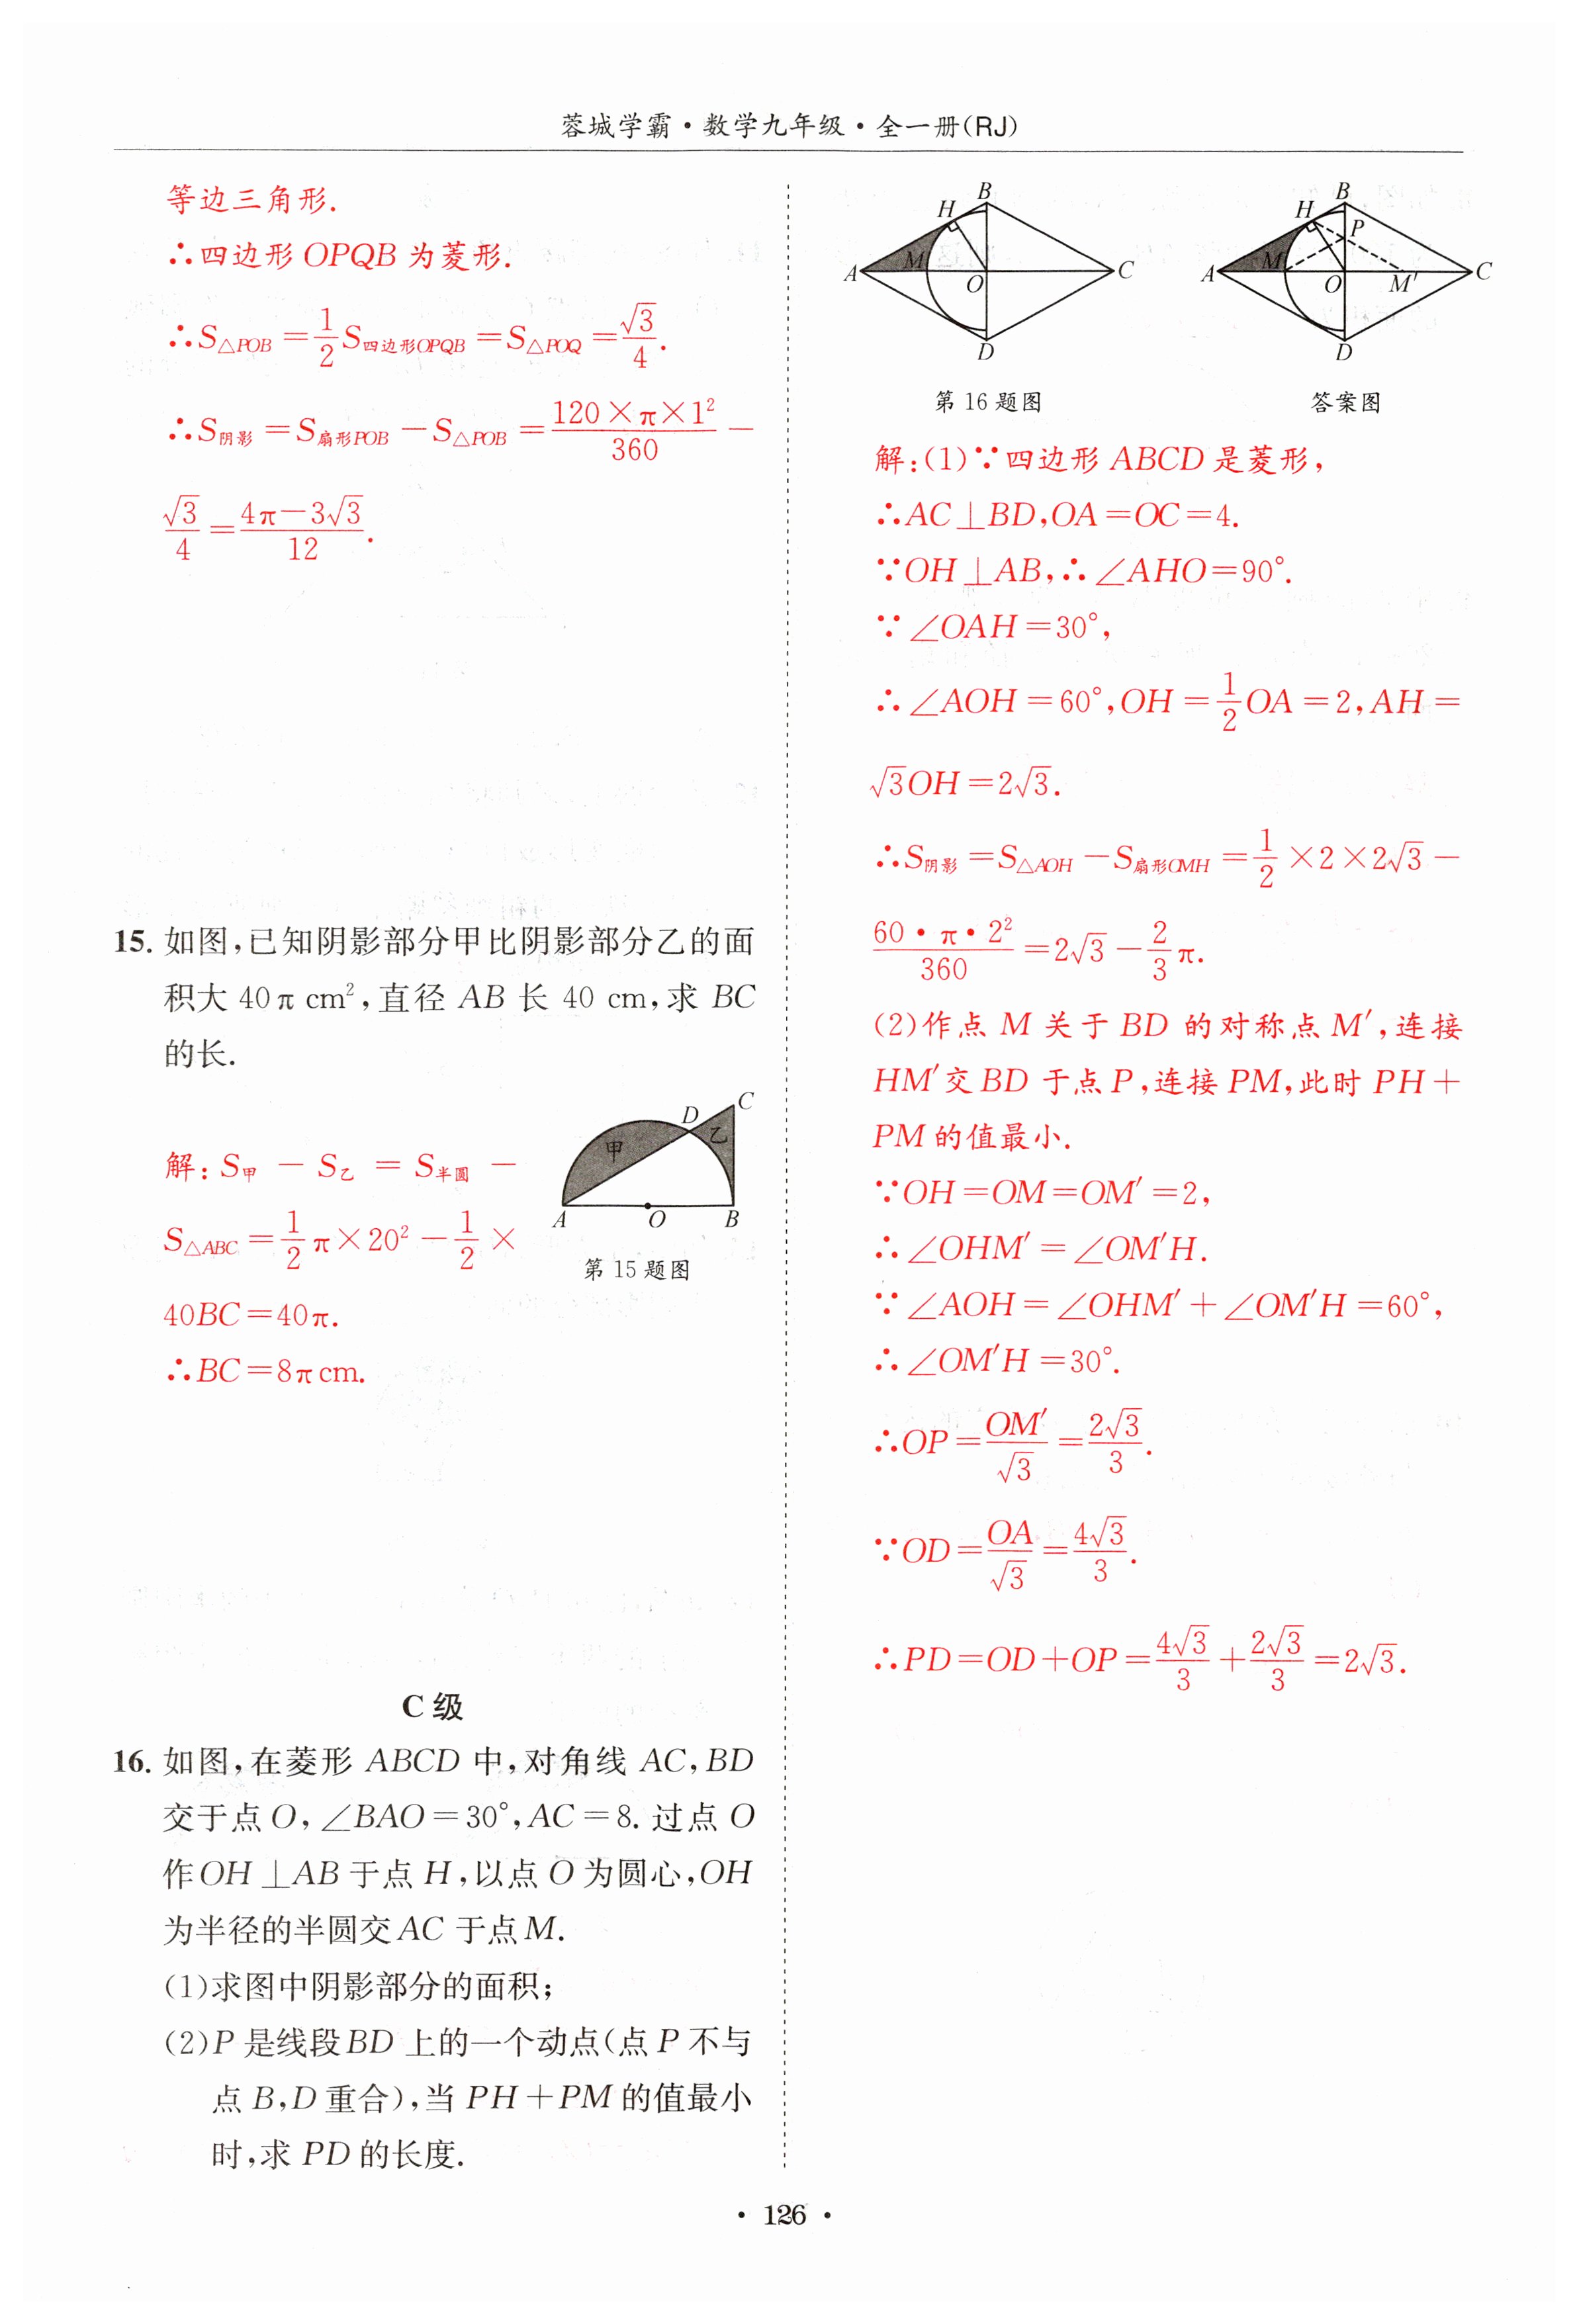 蓉城学霸·数学九年级·全一册(RJ)
等边三角形.
∴四边形OPQB为菱形.
∴S△POB=1/2S四边形OPQB=S△POQ=√3/4.
∴S阴影=S扇形POB-S△POB=120×π×1²/360-
√3/4=4π-3√3/12.
15. 如图,已知阴影部分甲比阴影部分乙的面
积大40π cm²,直径AB长40 cm,求BC
的长.
D
C
甲
乙
A
O
B
第15题图
解:S甲-S乙=S半圆-
S△ABC=1/2π×20²-1/2×
40BC=40π.
∴BC=8π cm.
C级
16. 如图,在菱形ABCD中,对角线AC,BD
交于点O,∠BAO=30°,AC=8.过点O
作OH⊥AB于点H,以点O为圆心,OH
为半径的半圆交AC于点M.
(1)求图中阴影部分的面积;
(2)P是线段BD上的一个动点(点P不与
点B,D重合),当PH+PM的值最小
时,求PD的长度.
B
H
A
M
O
C
D
第16题图
B
H
P
A
M
O
M′
C
D
答案图
解:(1)∵四边形ABCD是菱形,
∴AC⊥BD,OA=OC=4.
∵OH⊥AB,∴∠AHO=90°.
∵∠OAH=30°,
∴∠AOH=60°,OH=1/2OA=2,AH=
√3OH=2√3.
∴S阴影=S△AOH-S扇形OMH=1/2×2×2√3-
60·π·2²/360=2√3-2/3π.
(2)作点M关于BD的对称点M′,连接
HM′交BD于点P,连接PM,此时PH+
PM的值最小.
∵OH=OM=OM′=2,
∴∠OHM′=∠OM′H.
∵∠AOH=∠OHM′+∠OM′H=60°,
∴∠OM′H=30°.
∴OP=OM′/√3=2√3/3.
∵OD=OA/√3=4√3/3.
∴PD=OD+OP=4√3/3+2√3/3=2√3.
·126·